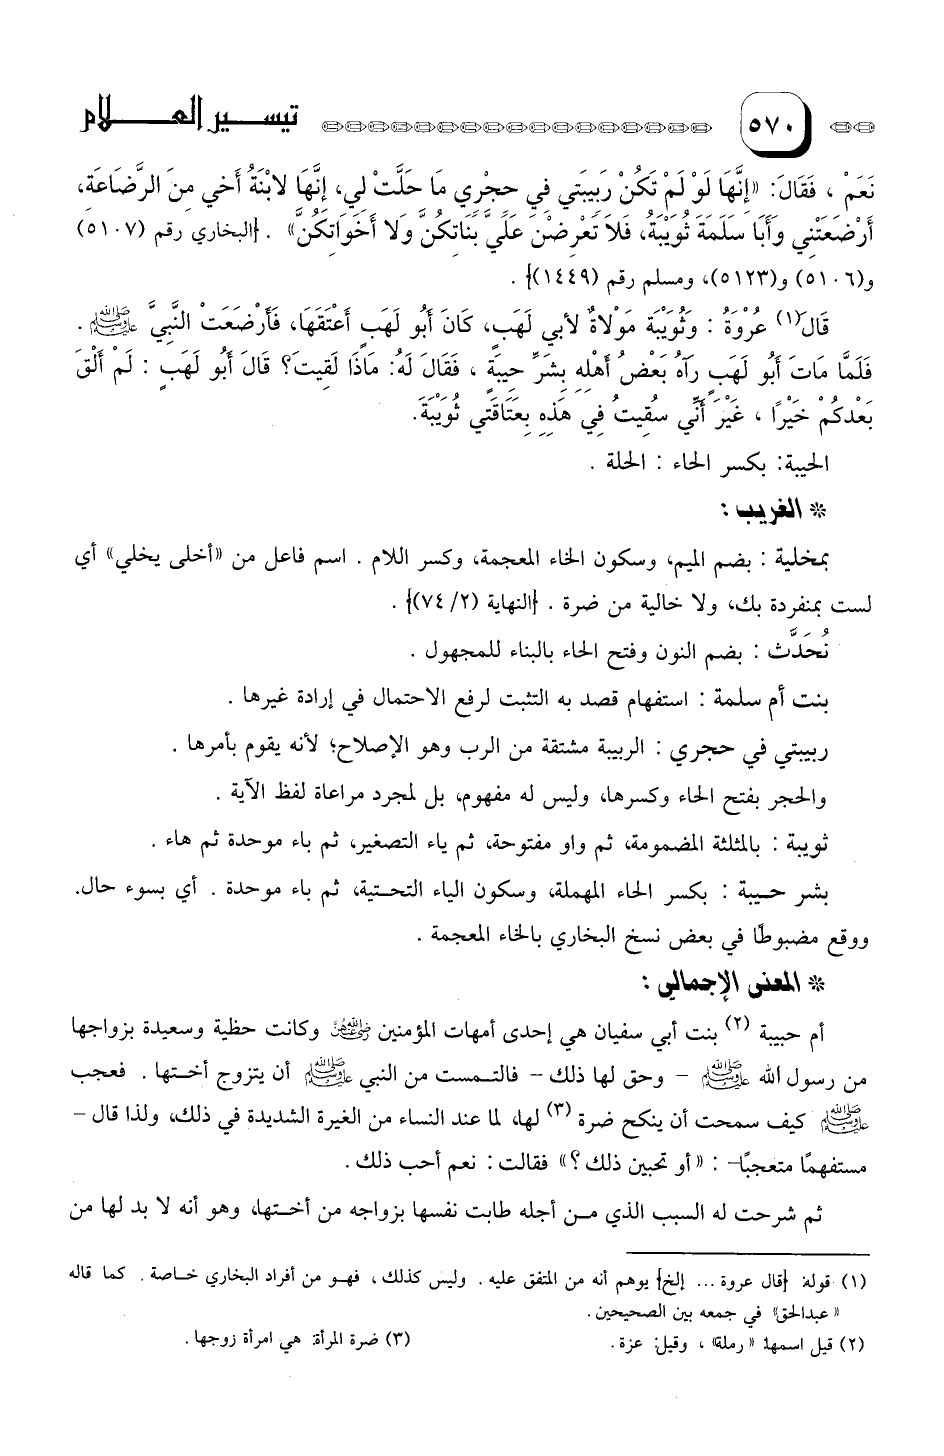 ٥٧٠ تيسير العلام
نَعَمْ ، فَقَالَ: «إِنَّهَا لَوْ لَمْ تَكُنْ رَبِيبَتِي فِي حِجْرِي مَا حَلَّتْ لِي، إِنَّهَا لابْنَةُ أَخِي مِنَ الرَّضَاعَةِ،
أَرْضَعَتْنِي وَأَبَا سَلَمَةَ ثُوَيْبَةُ، فَلاَ تَعْرِضْنَ عَلَيَّ بَنَاتِكُنَّ وَلا أَخَوَاتِكُنَّ» . {البخاري رقم (٥١٠٧)
و(٥١٠٦) و(٥١٢٣)، ومسلم رقم (١٤٤٩)} .
قَالَ(١) عُرْوَةُ : وَثُوَيْبَةُ مَوْلاَةٌ لأَبِي لَهَبٍ، كَانَ أَبُو لَهَبٍ أَعْتَقَهَا، فَأَرْضَعَتْ النَّبِيَّ ﷺ .
فَلَمَّا مَاتَ أَبُو لَهَبٍ رَآهُ بَعْضُ أَهْلِهِ بِشَرِّ حِيبَةٍ ، فَقَالَ لَهُ: مَاذَا لَقِيتَ؟ قَالَ أَبُو لَهَبٍ : لَمْ أَلْقَ
بَعْدَكُمْ خَيْرًا ، غَيْرَ أَنِّي سُقِيتُ فِي هَذِهِ بِعَتَاقَتِي ثُوَيْبَةَ.
الحيبة: بكسر الحاء : الحلة .
* الغريب :
بمخلية : بضم الميم، وسكون الخاء المعجمة، وكسر اللام . اسم فاعل من «أخلى يخلي» أي
لست بمنفردة بك، ولا خالية من ضرة . {النهاية (٧٤/٢)} .
نُحَدَّث : بضم النون وفتح الحاء بالبناء للمجهول .
بنت أم سلمة : استفهام قصد به التثبت لرفع الاحتمال في إرادة غيرها .
ربيبتي في حجري : الربيبة مشتقة من الرب وهو الإصلاح؛ لأنه يقوم بأمرها .
والحجر بفتح الحاء وكسرها، وليس له مفهوم، بل لمجرد مراعاة لفظ الآية .
ثويبة : بالمثلثة المضمومة، ثم واو مفتوحة، ثم ياء التصغير، ثم باء موحدة ثم هاء .
بشر حيبة : بكسر الحاء المهملة، وسكون الياء التحتية، ثم باء موحدة . أي بسوء حال.
ووقع مضبوطًا في بعض نسخ البخاري بالخاء المعجمة .
* المعنى الإجمالي :
أم حبيبة (٢) بنت أبي سفيان هي إحدى أمهات المؤمنين رضي الله عنهن وكانت حظية وسعيدة بزواجها
من رسول الله ﷺ – وحق لها ذلك – فالتمست من النبي ﷺ أن يتزوج أختها . فعجب
ﷺ كيف سمحت أن ينكح ضرة (٣) لها، لما عند النساء من الغيرة الشديدة في ذلك، ولذا قال –
مستفهمًا متعجبًا– : «أو تحبين ذلك ؟» فقالت : نعم أحب ذلك .
ثم شرحت له السبب الذي من أجله طابت نفسها بزواجه من أختها، وهو أنه لا بد لها من
(١) قوله: {قال عروة ... إلخ} يوهم أنه من المتفق عليه . وليس كذلك ، فهو من أفراد البخاري خاصة . كما قاله
«عبدالحق» في جمعه بين الصحيحين .
(٢) قيل اسمها: «رملة» ، وقيل: عزة . (٣) ضرة المرأة: هي امرأة زوجها .